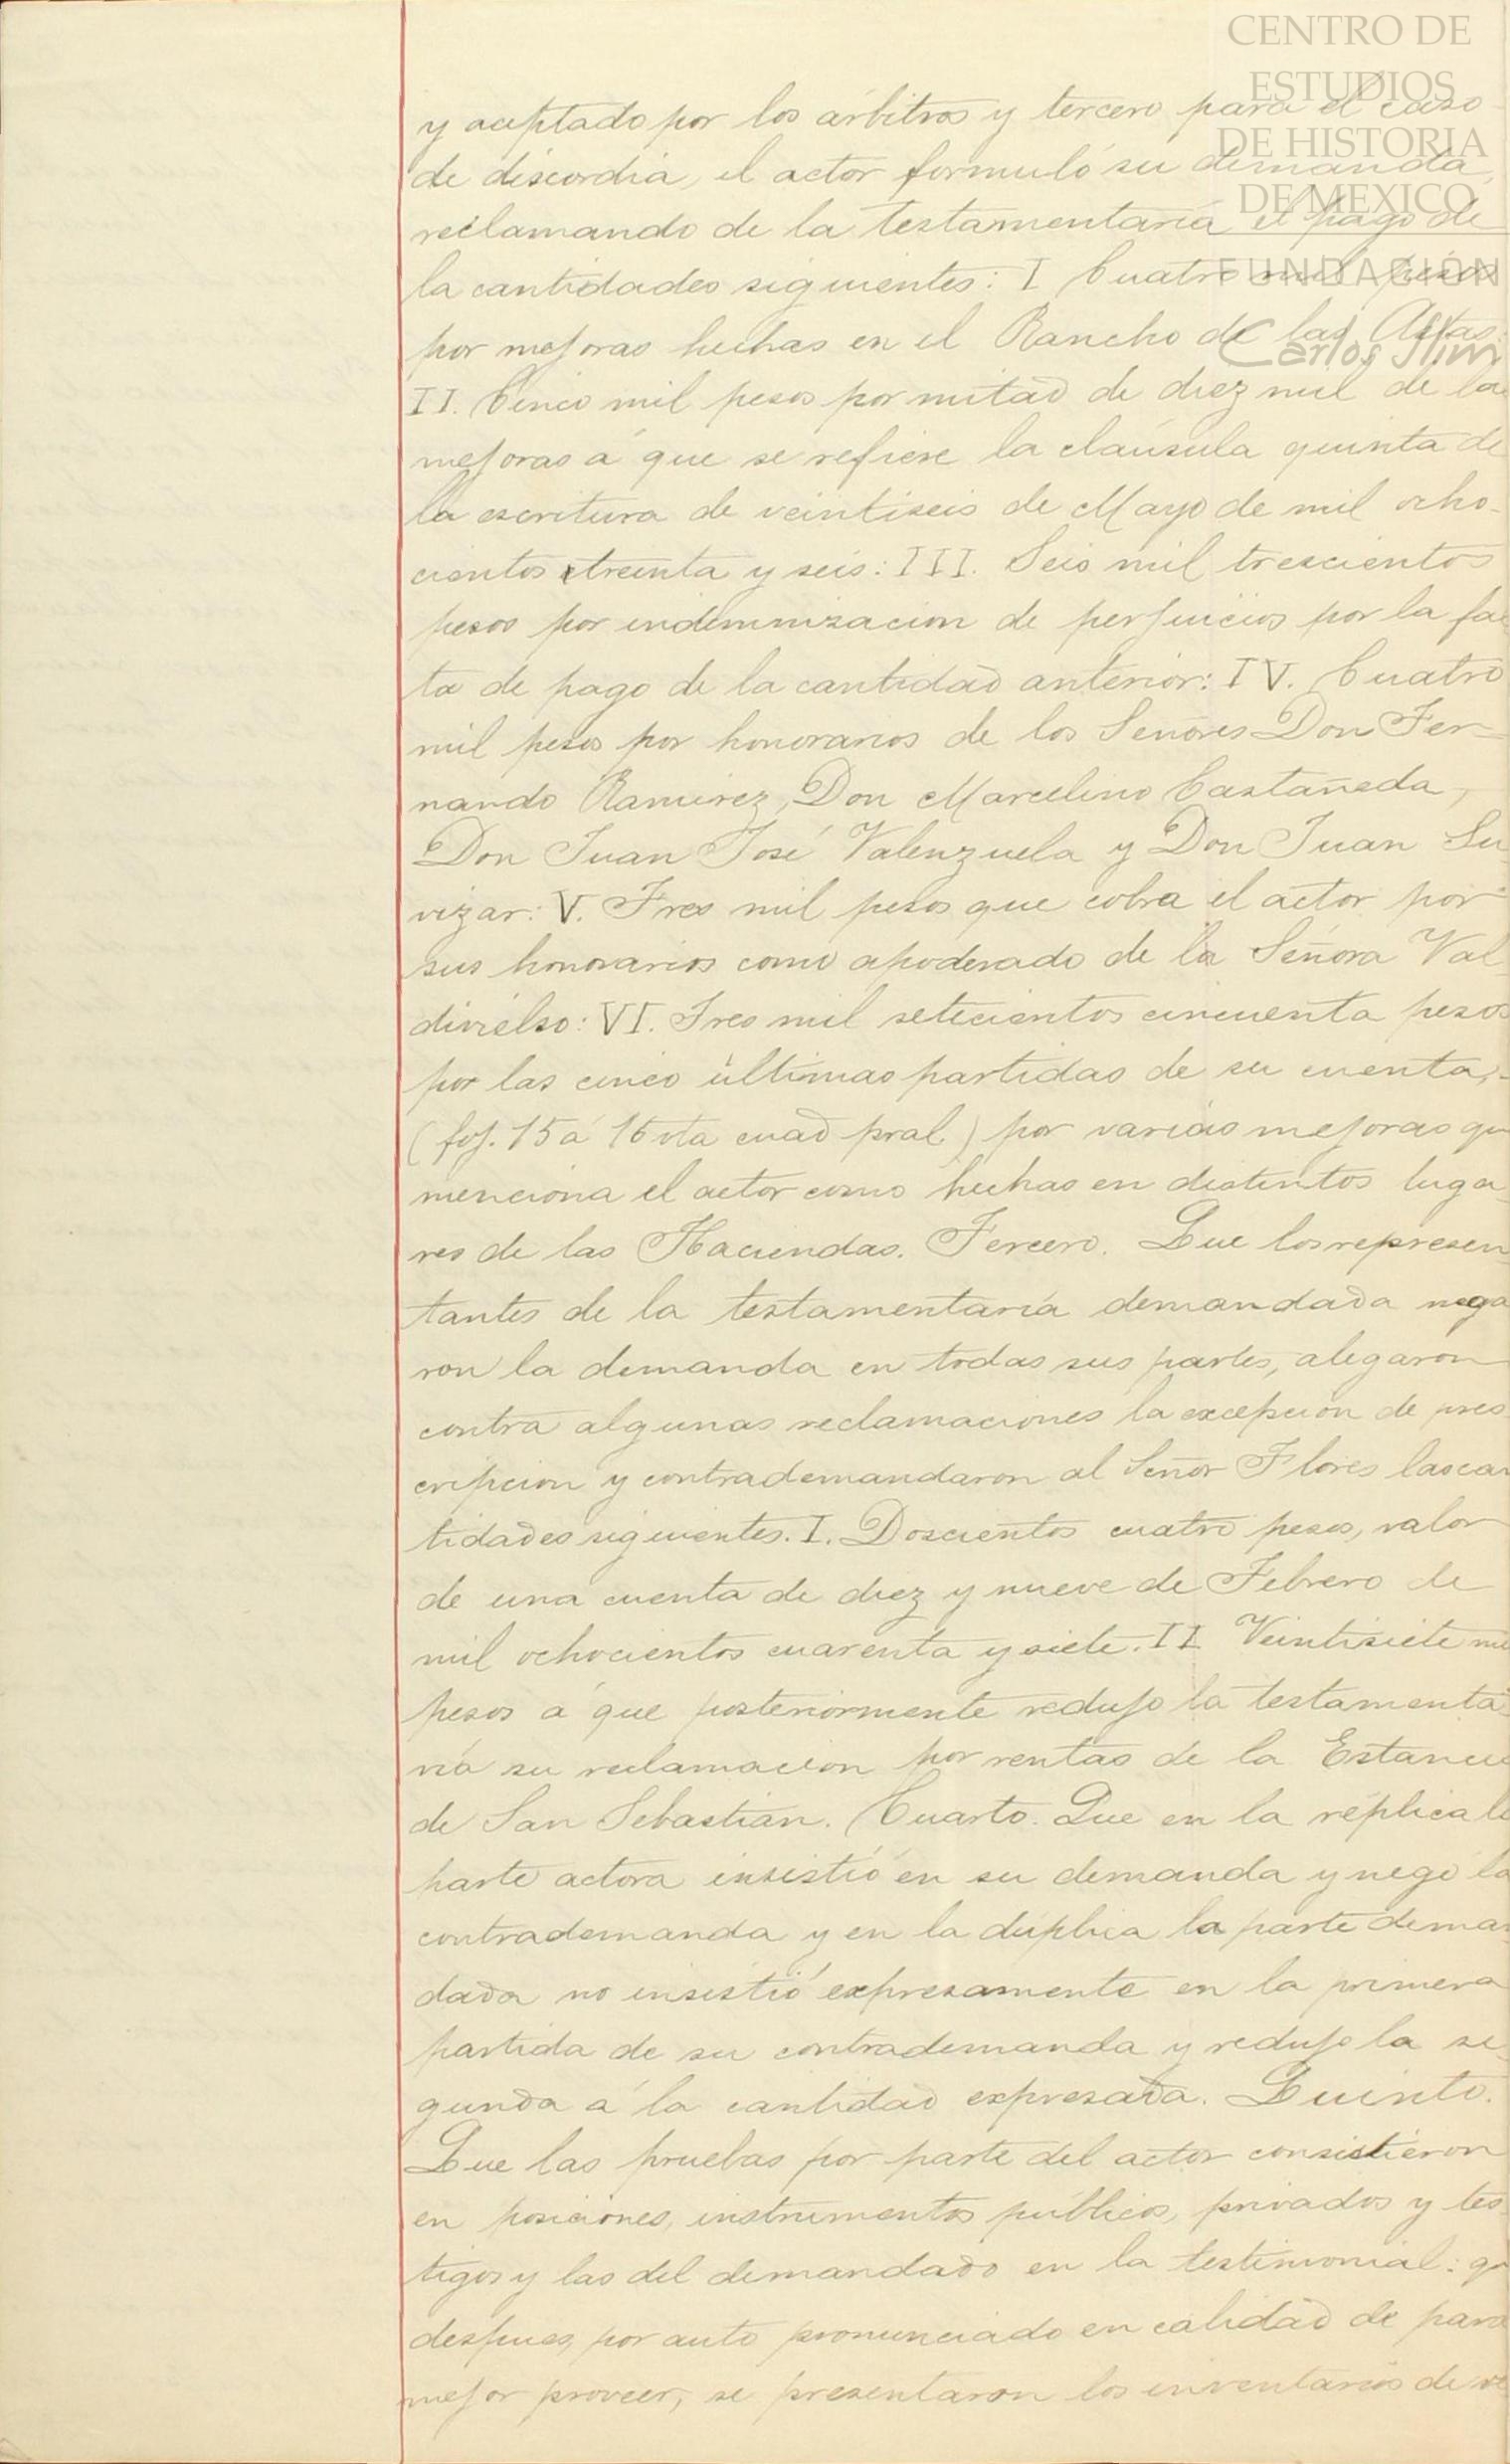 CENTRO DE
ESTUDIOS
DE HISTORIA
DE MEXICO
FUNDACIÓN
Carlos Slim
y aceptado por los árbitros y tercero para el caso
de discordia, el actor formuló su demanda,
reclamando de la testamentaría el pago de
la cantidades siguientes: I Cuatro mil pesos
por mejoras hechas en el Rancho de las
II. Cinco mil pesos por mitad de diez mil de la
mejoras á que se refiere la claúsula quinta de
la escritura de veintiseis de Mayo de mil ocho-
cientos treinta y seis: III. Seis mil trescientos
pesos por indemnizacion de perjuicios por la fal
ta de pago de la cantidad anterior: IV. Cuatro
mil pesos por honorarios de los Señores Don Fer-
nando Ramirez, Don Marcelino Castañeda,
Don Juan José Valenzuela y Don Juan Su
vizar: V. Tres mil pesos que cobra el actor por
sus honorarios como apoderado de la Señora Val
divielso: VI. Tres mil setecientos cincuenta pesos
por las cinco últimas partidas de su cuenta,
(foj. 15 á 16 vta cuad pral) por varias mejoras qu
menciona el actor como hechas en distintos luga
res de las Haciendas. Tercero. Que los represen
tantes de la testamentaría demandada nega
ron la demanda en todas sus partes, alegaron
contra algunas reclamaciones la excepcion de pres
cripcion y contrademandaron al Señor Flores las can
tidades siguientes. I. Doscientos cuatro pesos, valor
de una cuenta de diez y nueve de Febrero de
mil ochocientos cuarenta y siete. II Veintisiete mil
pesos á que posteriormente redujo la testamenta
ría su reclamacion por rentas de la Estancia
de San Sebastian. Cuarto. Que en la réplica la
parte actora insistió en su demanda y negó la
contrademanda y en la dúplica la parte deman
dada no insistió expresamente en la primera
partida de su contrademanda y redujo la se
gunda á la cantidad expresada. Quinto.
Que las pruebas por parte del actor consistieron
en posiciones, instrumentos públicos, privados y tes
tigos y las del demandado en la testimonial: qu
despues, por auto pronunciado en calidad de para
mejor proveer, se presentaron los inventarios de